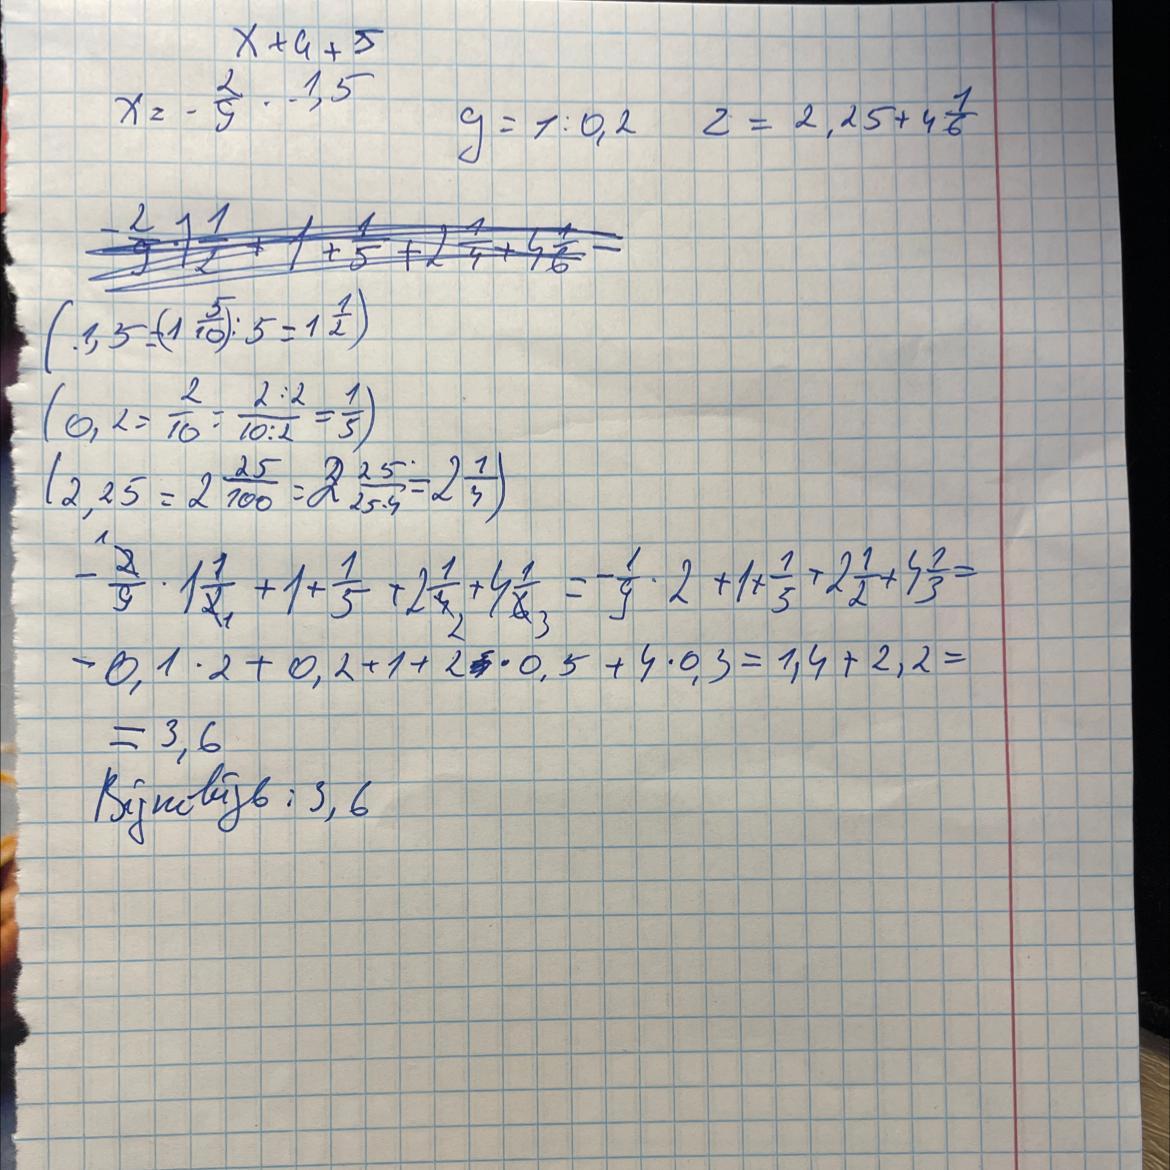 x+4+5
x = - 2/9 · -1,5
y = 1:0,2 z = 2,25+4 1/6
- 2/9 · 1 1/2 + 1 + 1/5 + 2 1/4 + 4 1/6 =
(1,5 = (1 5/10) : 5 = 1 1/2)
(0,2 = 2/10 = 2:2/10:2 = 1/5)
(2,25 = 2 25/100 = 2 25/25·4 = 2 1/4)
- 2/9 · 1 1/2 + 1 + 1/5 + 2 1/4 + 4 1/6 = - 1/9 · 2 + 1 + 1/5 + 2 1/2 + 4 1/3 =
- 0,1 · 2 + 0,2 + 1 + 2 · 0,5 + 4 · 0,3 = 1,4 + 2,2 =
= 3,6
Відповідь : 3,6